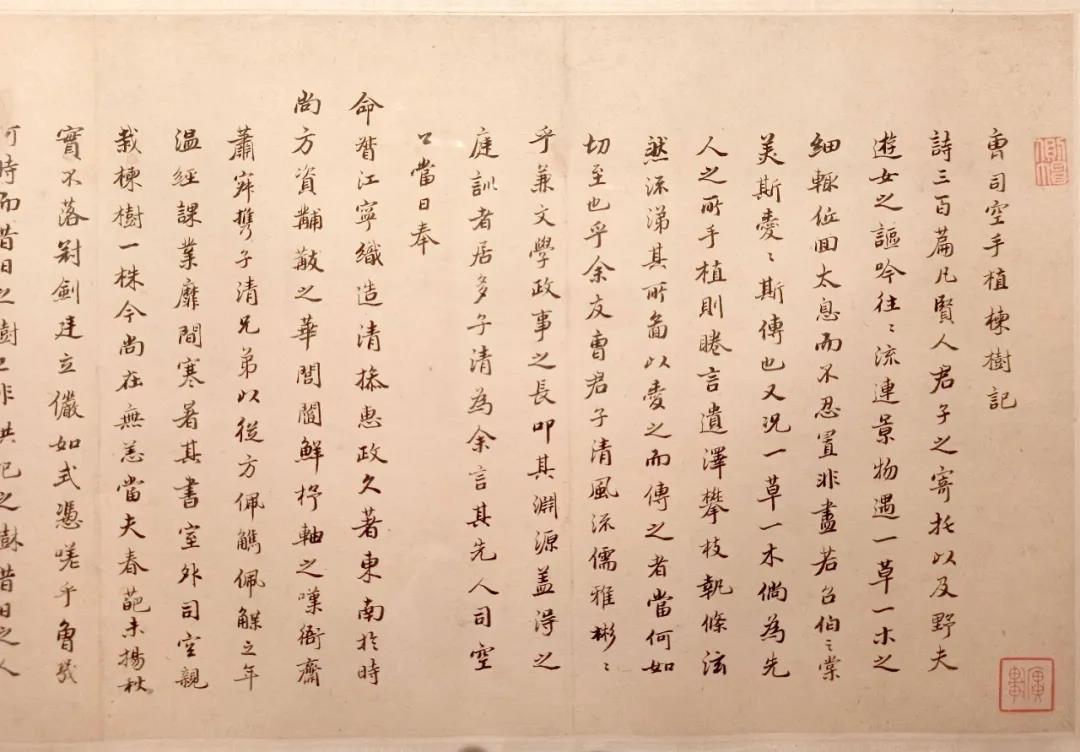 曹司空手植楝樹記
詩三百篇凡賢人君子之寄托以及野夫
遊女之謳吟往〻流連景物遇一草一木之
細輒低回太息而不忍置非盡若召伯〻棠
美斯愛〻斯傳也又況一草一木倘為先
人之所手植則睠言遺澤攀枝執條泫
然流涕其所圖以愛之而傳之者當何如
切至也乎余友曹君子清風流儒雅彬〻
乎兼文學政事之長叩其淵源盖得之
庭訓者居多子清為余言其先人司空
公當日奉
命督江寧織造清操惠政久著東南於時
尚方資黼黻之華閭閻鮮杼軸之嘆衙齋
蕭寂攜子清兄弟以從方佩觿佩韘之年
温經課業靡間寒暑其書室外司空親
栽楝樹一株今尚在無恙當夫春葩未揚秋
實不落冠劍廷立儼如式憑嗟乎曾幾
何時而昔日之樹已非拱把之樹昔日之人